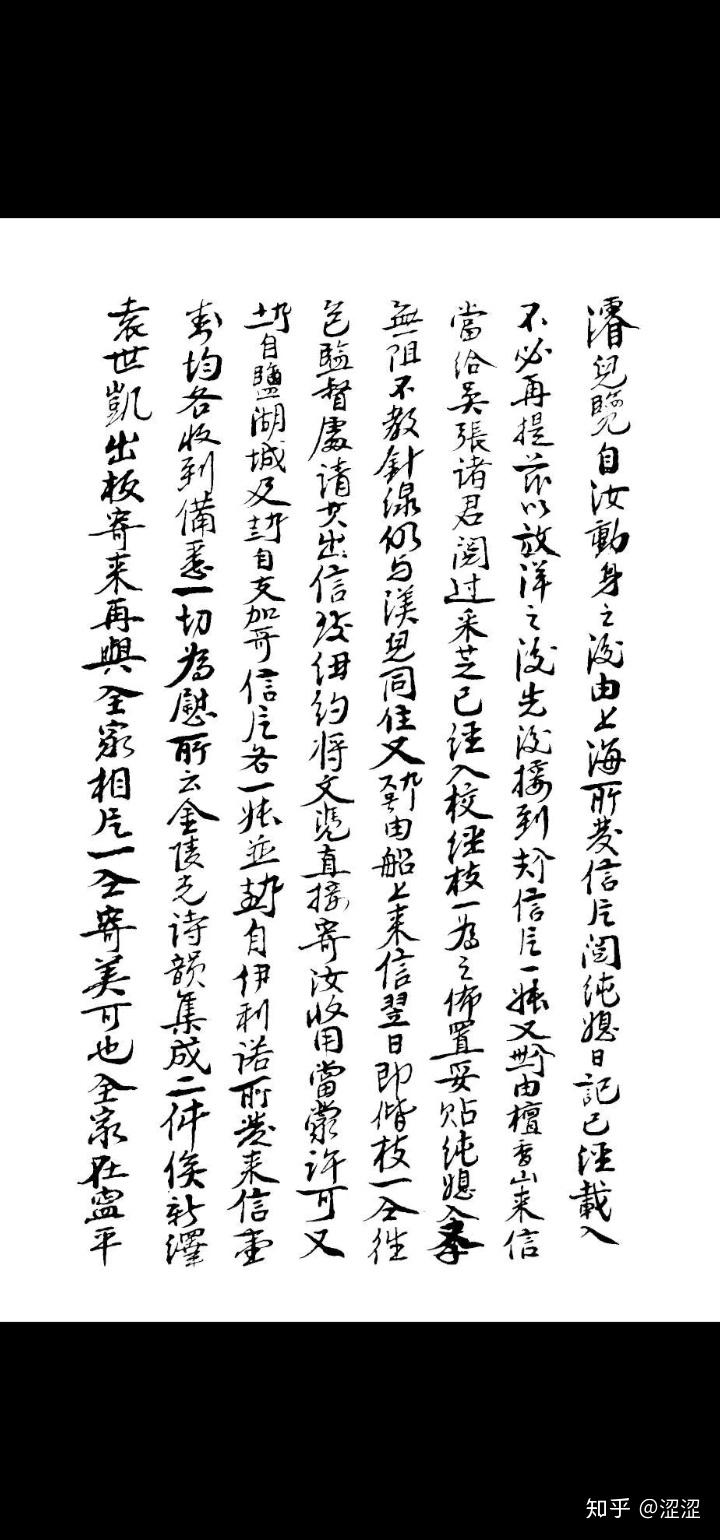 濬兒覽自汝動身之後由上海所發信片閱純媳日記已經載入
不必再提茲以放洋之後先後接到信片一張又由檀香山来信
當給吴張諸君閲过采芝已經入校經枝一為之佈置妥貼純媳入本
無阻不教針線仍与渼兒同住又由船上来信翌日即偕枝一仝往
邑監督處請其出信致纽约将文憑直接寄汝收用當蒙許可又
自鹽湖城及自支加哥信片各一張並自伊利诺所發来信壹
封均各收到備悉一切為慰所云金陵光诗韻集成二件俟新譯
袁世凱出板寄来再與仝家相片一仝寄美可也仝家在寧平
知乎 @涩涩